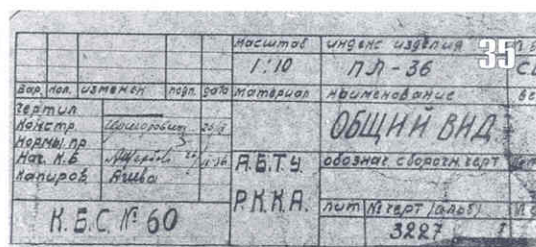 масштаб индекс изделия 35
1:10 ПЛ-36
вар. кол. изменен подп. дата материал наименование
чертил
констр.
нормы.пр
Нач. К.Б.
копиров.
ОБЩИЙ ВИД
А.Б.Т.У.
Р.К.К.А.
обознач сборочн. черт
лит № черт (альб)
3227
К.Б.С. № 60